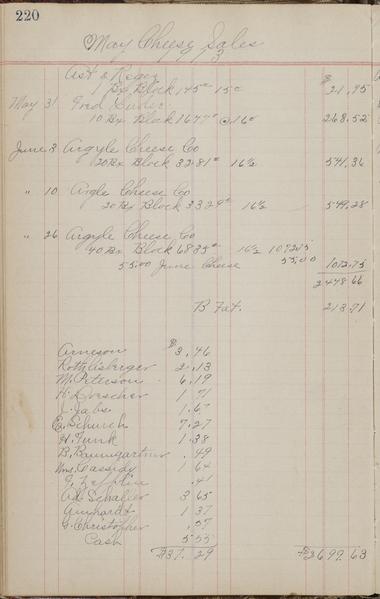 220
May Cheese Sales
Ast & Roger $
1 Bx Block 145# 15¢ 21.95
May 31 Fred
10 Bx Block 1677# @ 16¢ 268.52
June 3 Argyle Cheese Co
20 Bx Block 3281# 16½ 541.36
" 10 Argle Cheese Co
20 Bx Block 3329# 16½ 549.28
" 26 Argyle Cheese Co
40 Bx Block 6835# 16½
55.00 June Cheese 55.00 1072.75
2448.66
B Fat. 213.71
$
Arneson 3.46
Rothlisberger 2.13
M. Peterson 6.19
H. 1 71
J. Jabs 1.67
E. Schurch 7.27
H. Funk 1.38
B. Baumgartner .49
Wm. Cassidy 1 64
J. .41
Ad. Schaller 3 65
1 37
G. Christopher
Cash 5.55
$37.29 $2699.63